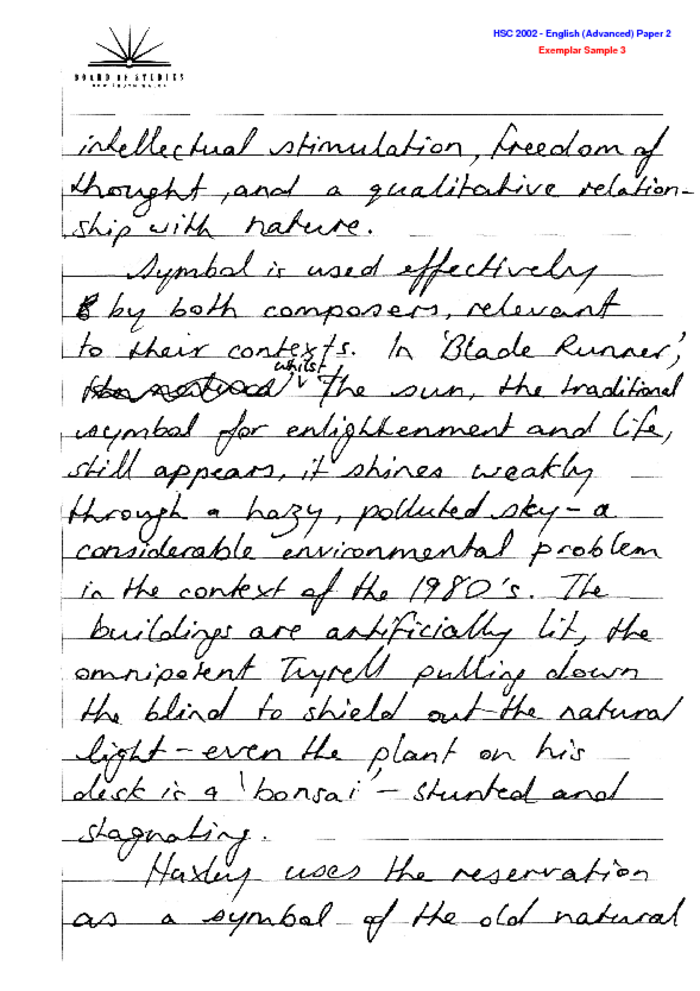 HSC 2002 - English (Advanced) Paper 2
Exemplar Sample 3
BOARD OF STUDIES
NEW SOUTH WALES
intellectual stimulation, freedom of
thought, and a qualitative relation-
ship with nature.
Symbol is used effectively
by both composers, relevant
to their contexts. In 'Blade Runner',
whilst
The sun, the traditional
symbol for enlightenment and life,
still appears, it shines weakly
through a hazy, polluted sky - a
considerable environmental problem
in the context of the 1980's. The
buildings are artificially lit, the
omnipotent Tyrell pulling down
the blind to shield out the natural
light - even the plant on his
desk is a 'bonsai' - stunted and
stagnating.
Huxley uses the reservation
as a symbol of the old natural